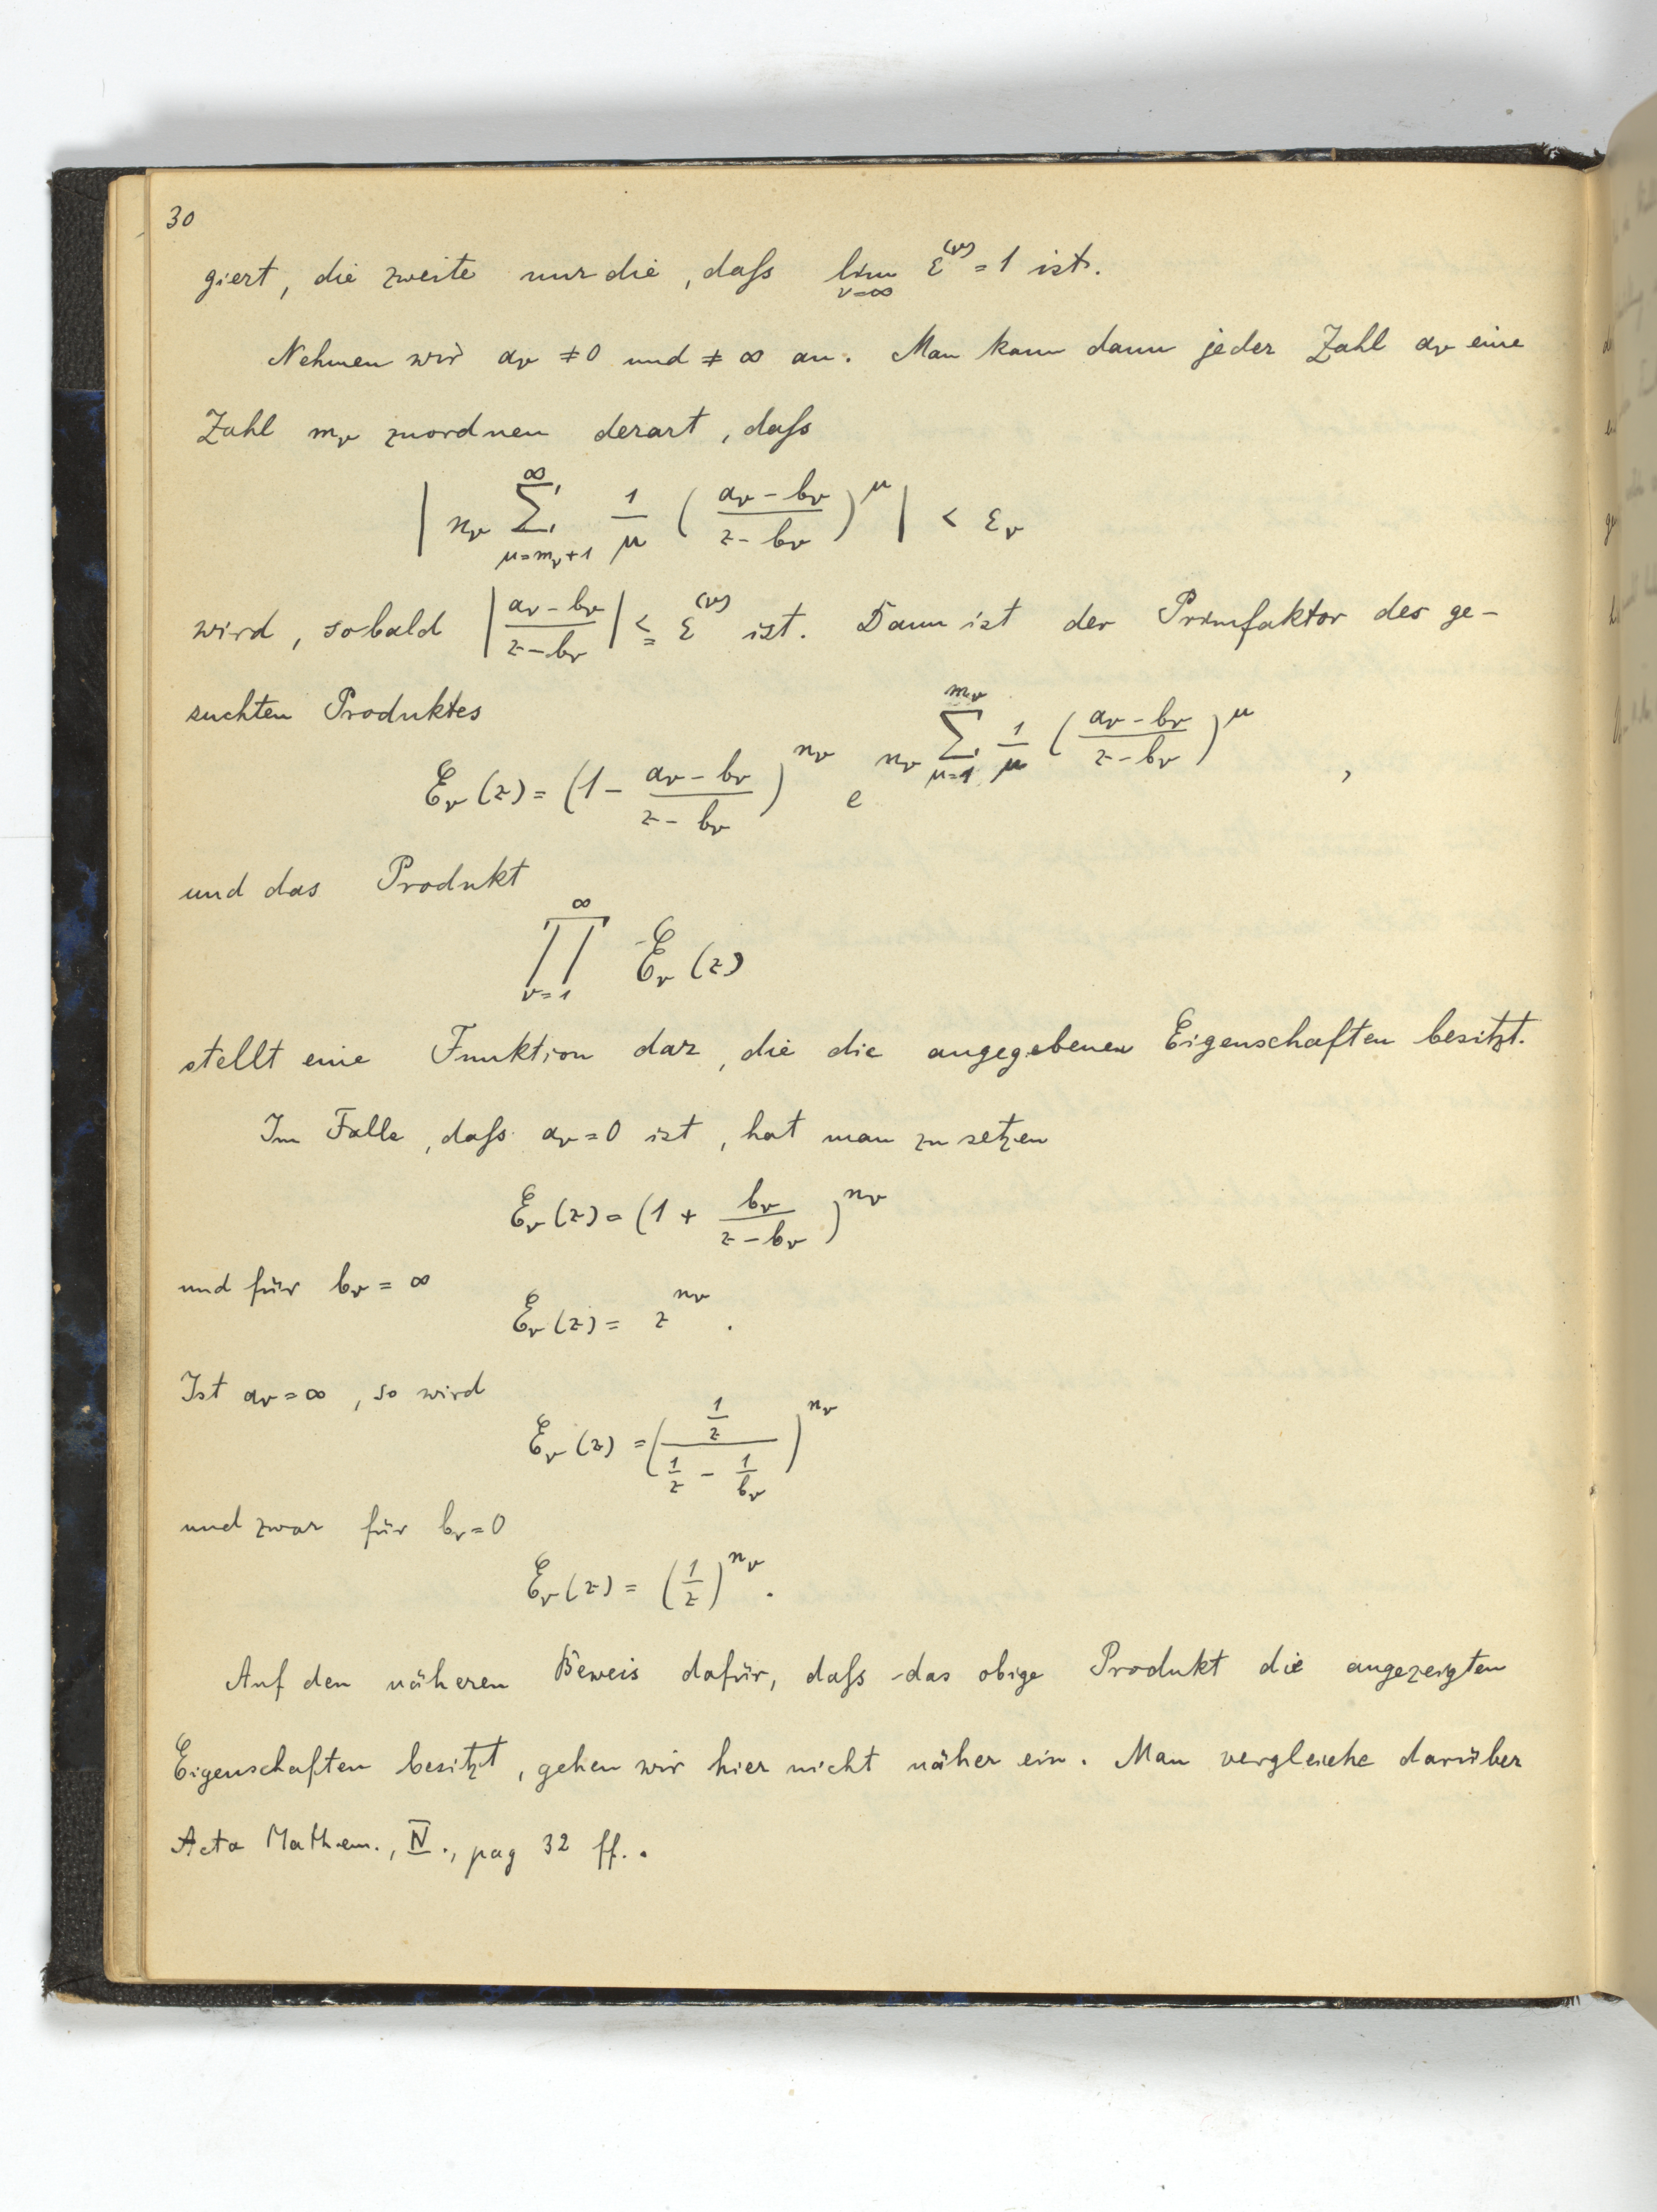 30
giert, die zweite nur die, daß lim_{ν=∞} ε^{(ν)} = 1 ist.
Nehmen wir a_ν ≠ 0 und ≠ ∞ an. Man kann dann jeder Zahl a_ν eine
Zahl m_ν zuordnen derart, daß
| n_ν ∑_{μ=m_ν+1}^{∞} 1/μ ( (a_ν - b_ν)/(z - b_ν) )^μ | < ε_ν
wird, sobald | (a_ν - b_ν)/(z - b_ν) | ≦ ε^{(ν)} ist. Dann ist der Primfaktor des ge-
suchten Produktes
E_ν(z) = (1 - (a_ν - b_ν)/(z - b_ν))^{n_ν} e^{n_ν ∑_{μ=1}^{m_ν} 1/μ ( (a_ν - b_ν)/(z - b_ν) )^μ} ,
und das Produkt
∏_{ν=1}^{∞} E_ν(z)
stellt eine Funktion dar, die die angegebenen Eigenschaften besitzt.
Im Falle, daß a_ν = 0 ist, hat man zu setzen
E_ν(z) = (1 + b_ν/(z - b_ν))^{n_ν}
und für b_ν = ∞
E_ν(z) = z^{n_ν} .
Ist a_ν = ∞, so wird
E_ν(z) = ( (1/z)/(1/z - 1/b_ν) )^{n_ν}
und zwar für b_ν = 0
E_ν(z) = (1/z)^{n_ν} .
Auf den näheren Beweis dafür, daß das obige Produkt die angezeigten
Eigenschaften besitzt, gehen wir hier nicht näher ein. Man vergleiche darüber
Acta Mathem., IV., pag 32 ff..